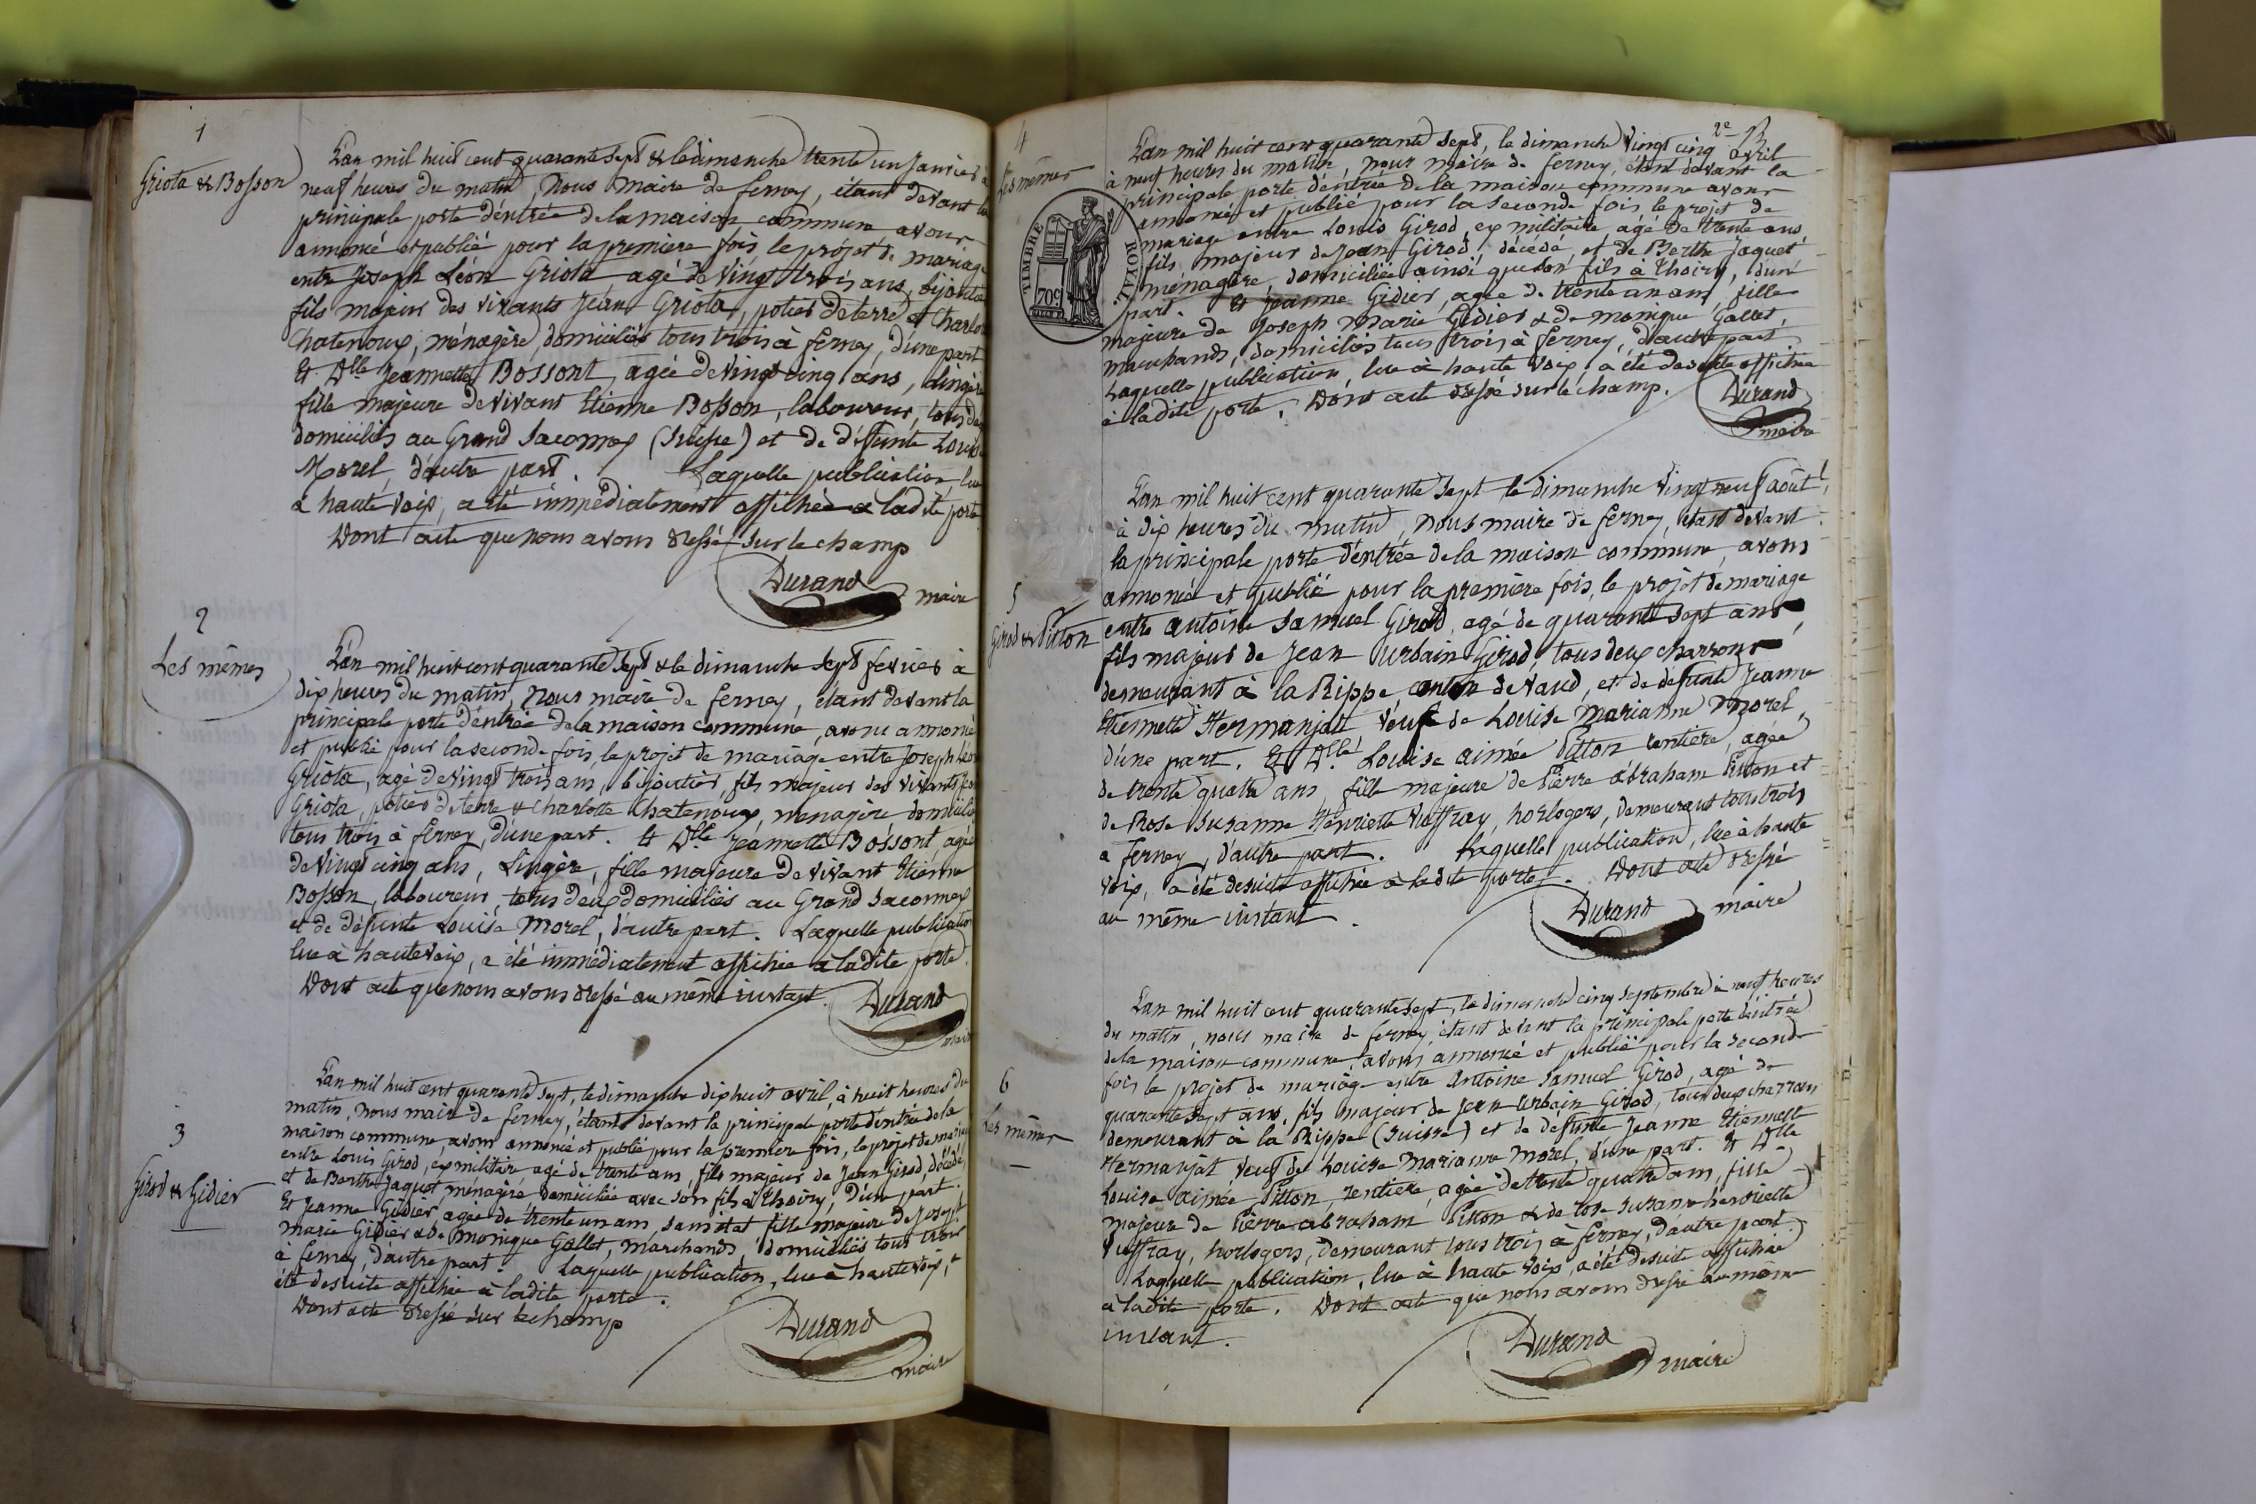 1
Griota & Bosson
L'an mil huit cent quarante sept & le dimanche trente un Janvier à
neuf heures du matin, Nous Maire de ferney, étant devant la
principale porte d'entrée de la maison commune avons
annoncé et publié pour la premiere fois le projet de mariage
entre Joseph Léon Griota agé de vingt trois ans, bijoutier
fils majeur des vivants Jean Griota, potier de terre & Charlotte
Chatenoux, ménagère, domiciliés tous trois à ferney, d'une part
Et Dlle Jeannette Bossont, agée de vingt cinq ans, lingère
fille majeure de vivant Etienne Bosson, laboureur, tous deux
domiciliés au Grand Saconnex (Suisse) et de défunte Louise
Morel, d'autre part. Laquelle publication, lue
à haute voix, a été immédiatement affichée à ladite porte
Dont acte que nous avons dressé sur le champ
Durand
maire
2
Les mêmes
L'an mil huit cent quarante sept & le dimanche sept fevrier à
dix heures du matin, Nous maire de ferney, étant devant la
principale porte d'entrée de la maison commune, avons annoncé
et publié pour la seconde fois, le projet de mariage entre Joseph Léon
Griota, agé de vingt trois ans, bijoutier, fils majeur des vivants Jean
Griota, potier de terre & Charlotte Chatenoux, menagère domiciliés
tous trois à ferney, d'une part. Et Dlle Jeannette Bossont, agée
de vingt cinq ans, Lingère, fille majeure de vivant Etienne
Bosson, laboureur, tous deux domiciliés au Grand Saconnex
et de défunte Louise Morel, d'autre part. Laquelle publication
lue à haute voix, a été immédiatement affichée à ladite porte.
Dont acte que nous avons dressé au même instant.
Durand
maire
3
Girod & Gidier
L'an mil huit cent quarante sept, le dimanche dix huit avril, à huit heures du
matin, nous maire de ferney, étant devant la principale porte d'entrée de la
maison commune, avons annoncé et publié pour la première fois, le projet de mariage
entre Louis Girod, ex militaire agé de trente ans, fils majeur de Jean Girod, décédé,
et de Berthe Jaquet ménagère domiciliée avec son fils à Thoiry, d'une part.
Et Jeanne Gidier agée de trente un ans, sans état fille majeure de Joseph
marie Gidier & de monique Gallet, marchands, domiciliés tous trois
à ferney, d'autre part. Laquelle publication, lue à haute voix, a
été de suite affichée à ladite porte.
Dont acte dressé sur le champ
Durand
maire
4
Les mêmes
2e
TIMBRE ROYAL
70c
L'an mil huit cent quarante sept, le dimanche vingt cinq avril
à neuf heures du matin, nous maire de ferney, étant devant la
principale porte d'entrée de la maison commune avons
annoncé et publié pour la seconde fois le projet de
mariage entre Louis Girod, ex militaire, agé de trente ans,
fils majeur de Jean Girod, décédé, et de Berthe Jaquet
ménagère, domiciliée ainsi que son fils à Thoiry, d'une
part. Et Jeanne Gidier, agée de trente un ans, fille
majeure de Joseph Marie Gidier & de monique Gallet,
marchands, domiciliés tous trois à ferney, d'autre part
Laquelle publication, lue à haute voix, a été de suite affichée
à ladite porte. Dont acte dressé sur le champ.
Durand
maire
5
Girod & Pitton
L'an mil huit cent quarante sept, le dimanche vingt neuf août,
à dix heures du matin, nous maire de ferney, étant devant
la principale porte d'entrée de la maison commune, avons
annoncé et publié pour la première fois, le projet de mariage
entre antoine Samuel Girod, agé de quarante sept ans,
fils majeur de Jean Urbain Girod, tous deux charrons
demeurant à la Rippe canton de Vaud, et de défunte Jeanne
Etiennette Hermanjatt veuf de Louise Marianne Morel,
d'une part. Et Dlle Louise aimée Pitton rentière, agée
de trente quatre ans, fille majeure de Pierre abraham Pitton et
de Rose Susanne Henriette Vuffray, horlogers, demeurant tous trois
à ferney, d'autre part. Laquelle publication, lue à haute
voix, a été de suite affichée à ladite porte. Dont acte dressé
au même instant.
Durand
maire
6
Les mêmes
L'an mil huit cent quarante sept, le dimanche cinq septembre à neuf heures
du matin, nous maire de ferney, étant devant la principale porte d'entrée
de la maison commune, avons annoncé et publié pour la seconde
fois le projet de mariage entre Antoine Samuel Girod, agé de
quarante sept ans, fils majeur de Jean Urbain Girod, tous deux charrons
demeurant à la Rippe (Suisse) et de défunte Jeanne Etiennette
Hermanjat veuf de Louise Marianne Morel, d'une part. Et Dlle
Louise aimée Pitton, rentière, agée de trente quatre ans, fille
majeure de Pierre abraham Pitton & de rose susanne henriette
Vuffray, horlogers, demeurant tous trois à ferney, d'autre part.
Laquelle publication, lue à haute voix, a été de suite affichée
à ladite porte. Dont acte que nous avons dressé au même
instant.
Durand
maire